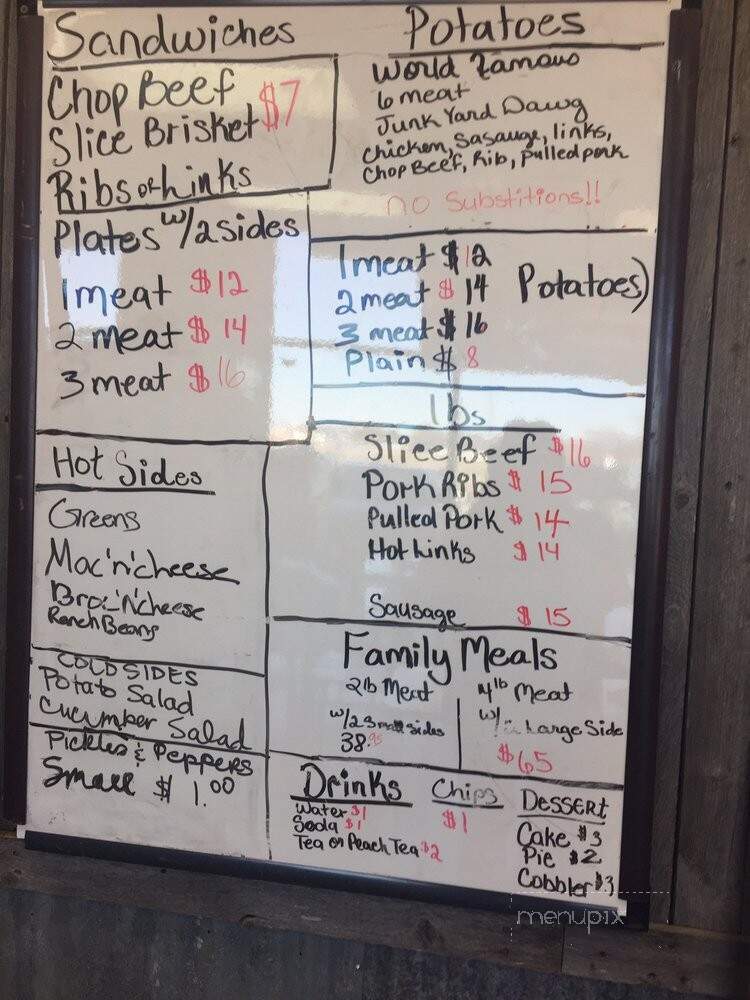 Sandwiches
Chop Beef
Slice Brisket $7
Ribs or Links
Plates w/2 sides
1 meat $12
2 meat $14
3 meat $16
Potatoes
World Famous
6 meat
Junk Yard Dawg
chicken, Sasauge, links,
Chop Beef, Rib, Pulled pork
no Substitions!!
1 meat $12
2 meat $14
3 meat $16
Plain $8
Potatoes)
lbs
Slice Beef $16
Pork Ribs $15
Pulled Pork $14
Hot Links $14
Sausage $15
Hot Sides
Greens
Mac'n'cheese
Broc'n'cheese
Ranch Beans
COLD SIDES
Potato Salad
Cucumber Salad
Pickles & Peppers
Small $1.00
Family Meals
2lb Meat
w/2 Small sides
38.95
4lb Meat
w/ Large Side
$65
Drinks
Water $1
Soda $1
Tea or Peach Tea $2
Chips
$1
Dessert
Cake $3
Pie $2
Cobbler $3
menupix